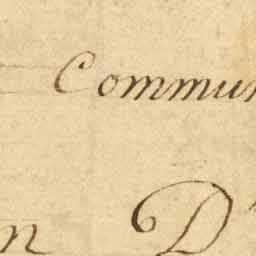 Commun
n D'